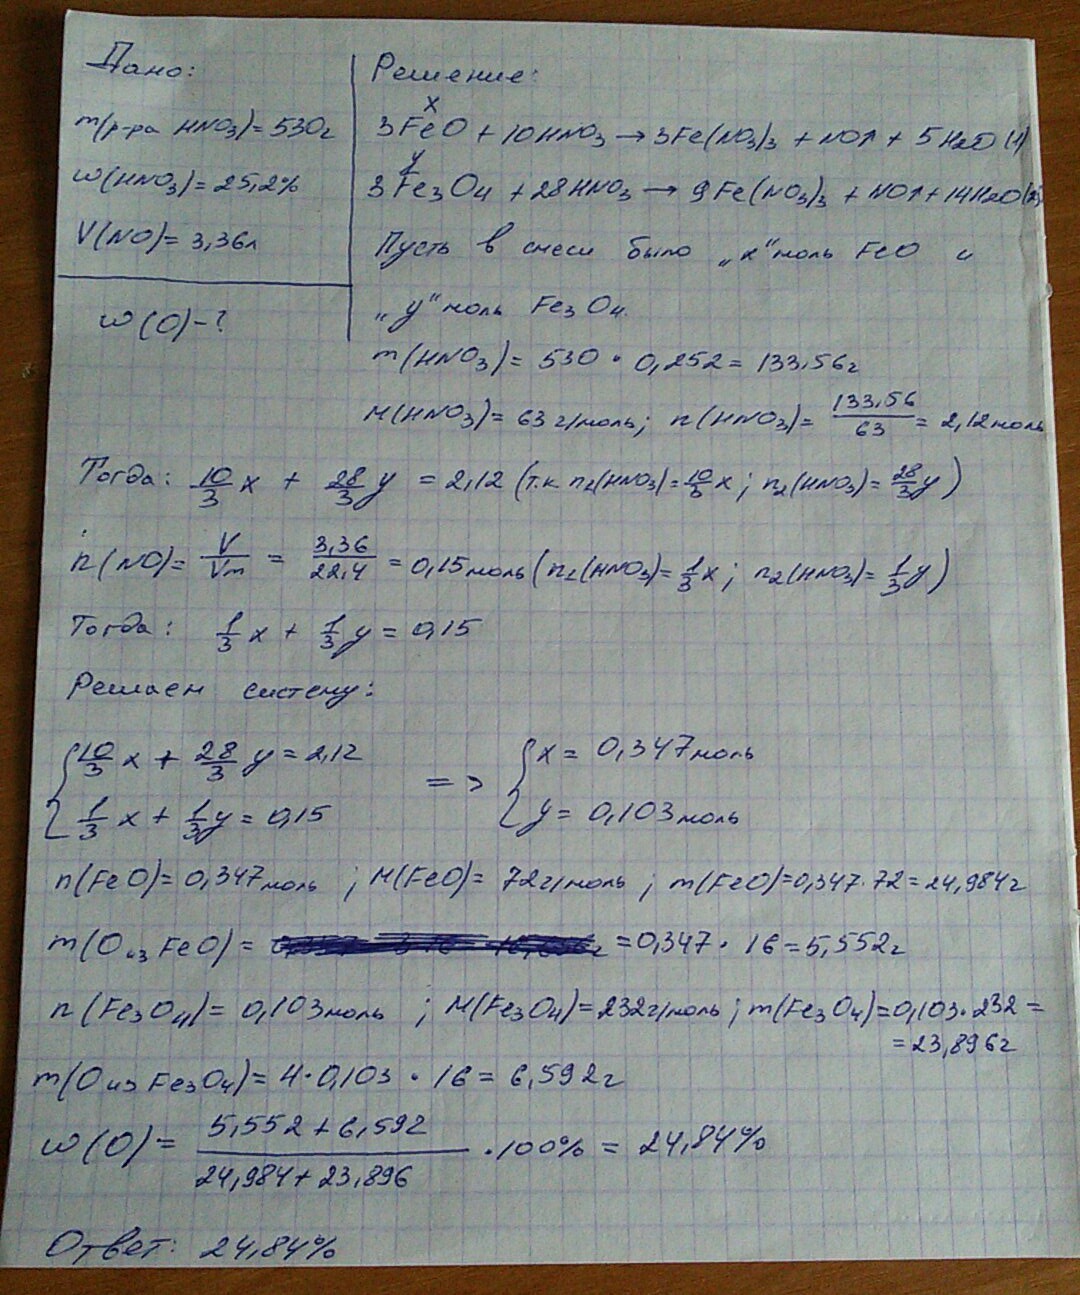 Дано:
m(р-ра HNO3)=530г
w(HNO3)=25,2%
V(NO)=3,36л
w(O)-?
Решение:
x
3FeO + 10HNO3 → 3Fe(NO3)3 + NO↑ + 5H2O (1)
y
3Fe3O4 + 28HNO3 → 9Fe(NO3)3 + NO↑ + 14H2O(2)
Пусть в смеси было „x“ моль FeO и
„y“ моль Fe3O4.
m(HNO3) = 530 · 0,252 = 133,56г
M(HNO3)= 63 г/моль; n(HNO3)= 133,56/63 = 2,12моль
Тогда: 10/3 x + 28/3 y = 2,12 (т.к n1(HNO3)=10/3 x; n2(HNO3)=28/3 y)
n(NO)= V/Vm = 3,36/22,4 = 0,15моль (n1(HNO3)=1/3 x; n2(HNO3)=1/3 y)
Тогда: 1/3 x + 1/3 y = 0,15
Решаем систему:
{ 10/3 x + 28/3 y = 2,12 => { x = 0,347моль
1/3 x + 1/3 y = 0,15 y = 0,103моль
n(FeO)= 0,347моль ; M(FeO)= 72г/моль ; m(FeO)=0,347·72=24,984г
m(O из FeO) = =0,347· 16 =5,552г
n(Fe3O4)= 0,103моль ; M(Fe3O4)=232г/моль; m(Fe3O4)=0,103·232=
=23,896г
m(O из Fe3O4)= 4·0,103 · 16 = 6,592г
w(O)= 5,552+6,592/24,984+23,896 ·100% = 24,84%
Ответ: 24,84%